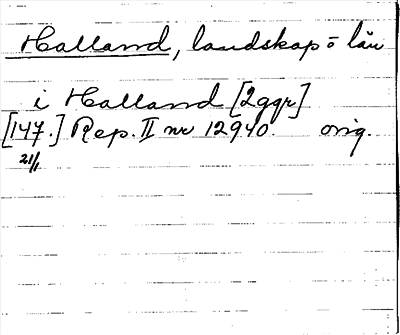 Halland, landskap = län
i Halland [2ggr]
[147.] Rep. II nr 12940. orig.
21/1